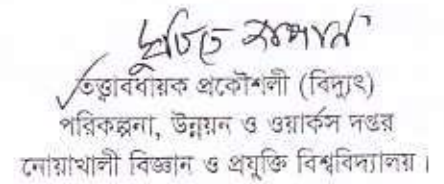 তত্ত্বাবধায়ক প্রকৌশলী (বিদ্যুৎ)
পরিকল্পনা, উন্নয়ন ও ওয়ার্কস দপ্তর
নোয়াখালী বিজ্ঞান ও প্রযুক্তি বিশ্ববিদ্যালয়।